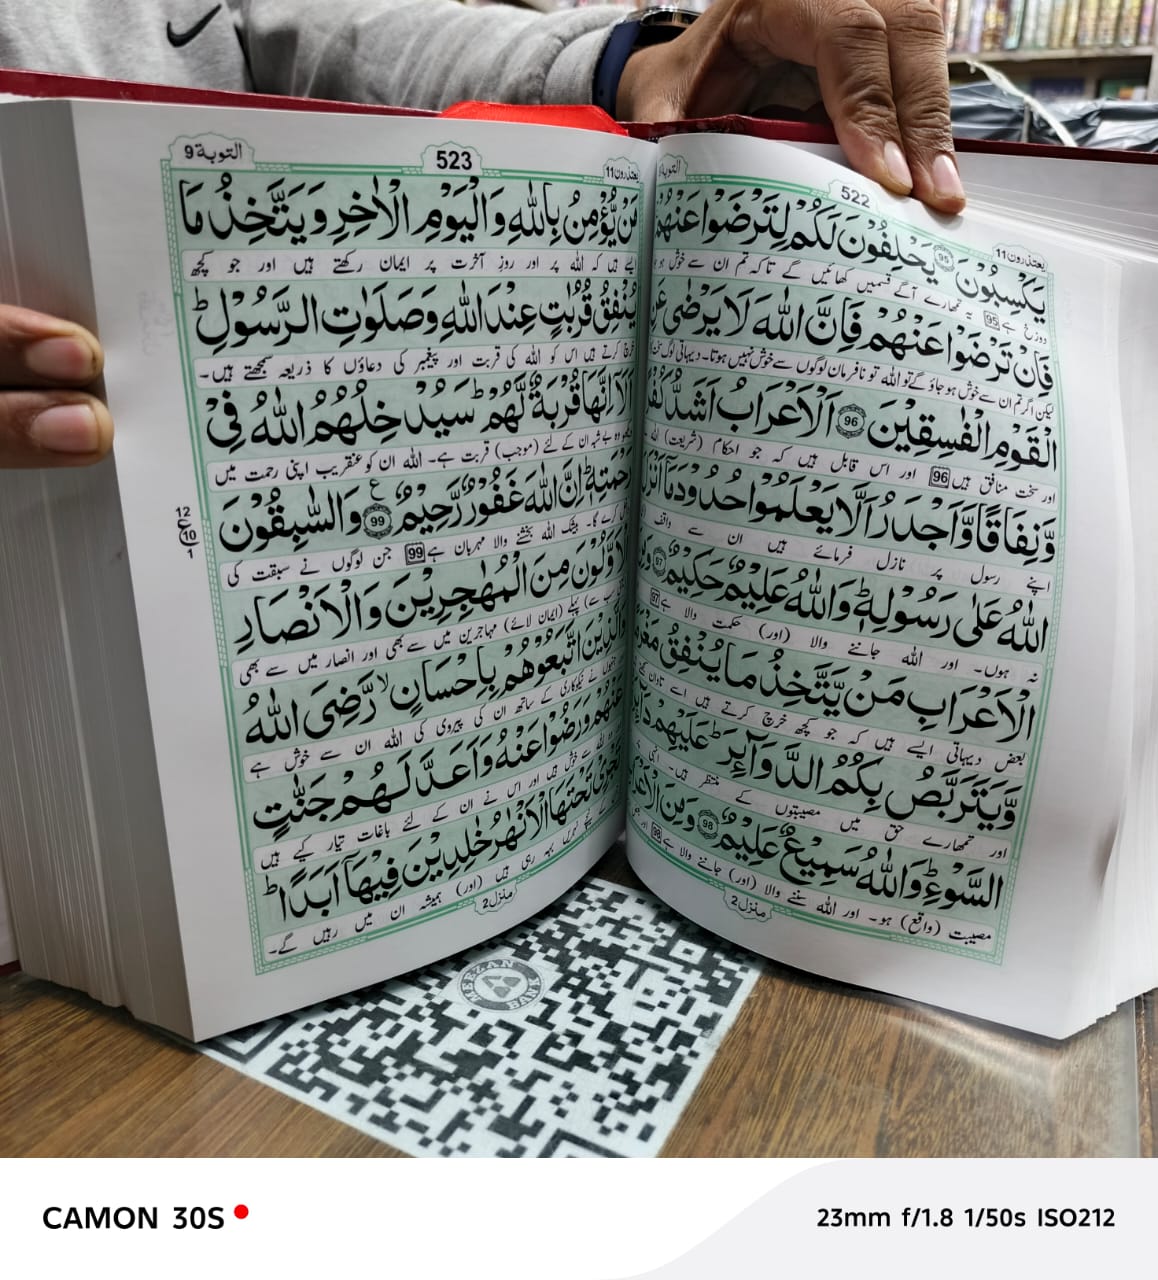 یعتذرون 11
522
التوبة
یَکْسِبُوْنَ 95 یَحْلِفُوْنَ لَکُمْ لِتَرْضَوْا عَنْهُمْ
دوزخ ہے 95 یہ تمہارے آگے قسمیں کھائیں گے تاکہ تم ان سے خوش ہو
فَاِنْ تَرْضَوْا عَنْهُمْ فَاِنَّ اللّٰهَ لَا یَرْضٰی
لیکن اگر تم ان سے خوش ہو جاؤ گے تو اللہ تو نافرمان لوگوں سے خوش نہیں ہوتا۔ دیہاتی لوگ
الْقَوْمِ الْفٰسِقِیْنَ 96 اَلْاَعْرَابُ اَشَدُّ
اور سخت منافق ہیں 96 اور اس قابل ہیں کہ جو احکام (شریعت) اللہ
وَّنِفَاقًا وَّاَجْدَرُ اَلَّا یَعْلَمُوْا حُدُوْدَ مَاۤ
اپنے رسول پر نازل فرمائے ہیں ان سے واقف
اللّٰهُ عَلٰی رَسُوْلِهٖؕ وَاللّٰهُ عَلِیْمٌ حَکِیْمٌ 97
نہ ہوں۔ اور اللہ جاننے والا (اور) حکمت والا ہے 97
الْاَعْرَابِ مَنْ یَّتَّخِذُ مَا یُنْفِقُ
بعض دیہاتی ایسے ہیں کہ جو کچھ خرچ کرتے ہیں اسے تاوان
وَّیَتَرَبَّصُ بِکُمُ الدَّوَآئِرَؕ عَلَیْهِمْ
اور تمہارے حق میں مصیبتوں کے منتظر ہیں۔ انہی
السَّوْءِؕ وَاللّٰهُ سَمِیْعٌ عَلِیْمٌ 98 وَمِنَ
مصیبت (واقع) ہو۔ اور اللہ سننے والا (اور) جاننے والا ہے 98
منزل 2
یعتذرون 11
523
التوبة 9
مَنْ یُّؤْمِنُ بِاللّٰهِ وَالْیَوْمِ الْاٰخِرِ وَیَتَّخِذُ مَا
ایسے ہیں کہ اللہ پر اور روزِ آخرت پر ایمان رکھتے ہیں اور جو کچھ
یُنْفِقُ قُرُبٰتٍ عِنْدَ اللّٰهِ وَصَلَوٰتِ الرَّسُوْلِؕ
خرچ کرتے ہیں اس کو اللہ کی قربت اور پیغمبر کی دعاؤں کا ذریعہ سمجھتے ہیں۔
اَلَاۤ اِنَّهَا قُرْبَةٌ لَّهُمْؕ سَیُدْخِلُهُمُ اللّٰهُ فِیْ
وہ بے شبہ ان کے لئے (موجب) قربت ہے۔ اللہ ان کو عنقریب اپنی رحمت میں
رَحْمَتِهٖؕ اِنَّ اللّٰهَ غَفُوْرٌ رَّحِیْمٌ 99 وَالسّٰبِقُوْنَ
کرے گا۔ بیشک اللہ بخشنے والا مہربان ہے 99 جن لوگوں نے سبقت کی
12
ع
10
1
الْاَوَّلُوْنَ مِنَ الْمُهٰجِرِیْنَ وَالْاَنْصَارِ
سے) پہلے (ایمان لائے) مہاجرین میں سے بھی اور انصار میں سے بھی
وَالَّذِیْنَ اتَّبَعُوْهُمْ بِاِحْسَانٍۙ رَّضِیَ اللّٰهُ
نے نیکوکاری کے ساتھ ان کی پیروی کی اللہ ان سے خوش ہے
عَنْهُمْ وَرَضُوْا عَنْهُ وَاَعَدَّ لَهُمْ جَنّٰتٍ
اللہ سے خوش ہیں اور اس نے ان کے لئے باغات تیار کیے ہیں
تَجْرِیْ تَحْتَهَا الْاَنْهٰرُ خٰلِدِیْنَ فِیْهَاۤ اَبَدًاؕ
نہریں بہہ رہی ہیں (اور) ہمیشہ ان میں رہیں گے۔
منزل 2
MEEZAN BANK
CAMON 30S
23mm f/1.8 1/50s ISO212